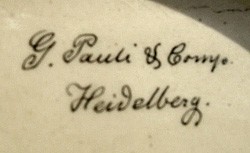 G. Pauli & Comp.
Heidelberg.